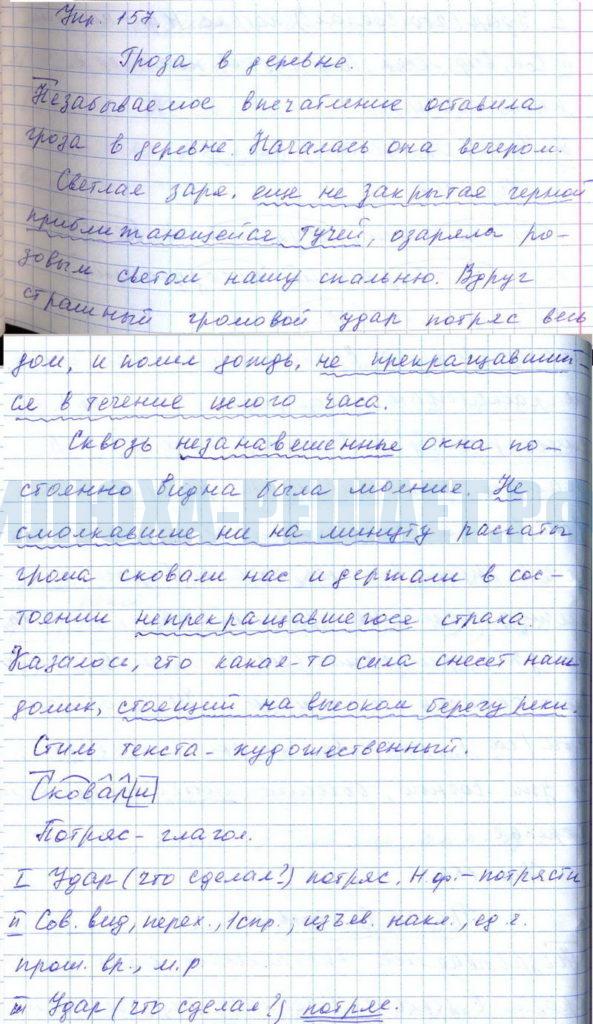 Упр. 157.
Гроза в деревне.
Незабываемое впечатление оставила
гроза в деревне. Началась она вечером.
Светлая заря, еще не закрытая черной
приближающейся тучей, озаряла ро-
зовым светом нашу спальню. Вдруг
страшный громовой удар потряс весь
дом, и полил дождь, не прекращавший-
ся в течение целого часа.
Сквозь незанавешенные окна по-
стоянно видна была молния. Не
смолкавшие ни на минуту раскаты
грома сковали нас и держали в сос-
тоянии непрекращавшегося страха.
Казалось, что какая-то сила снесет наш
домик, стоящий на высоком берегу реки.
Стиль текста - художественный.
Сковали
Потряс - глагол.
I Удар (что сделал?) потряс, Н.ф. - потрясти
II Сов. вид, перех., 1 спр., изъев. накл., ед. ч.
прош. вр., м.р
III Удар (что сделал?) потряс.